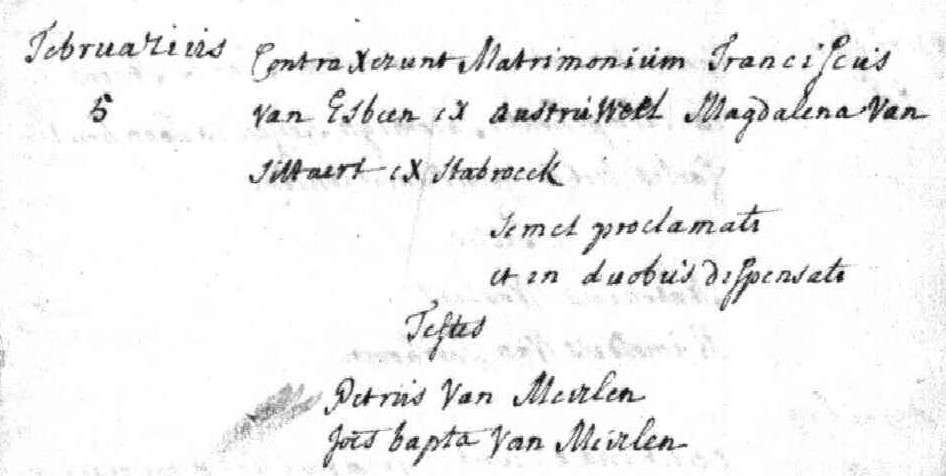 Februarius Contraxerunt Matrimonium Franciscus
5 van Esbeen ex austruweel Magdalena Van
Sittaert ex Stabroeck
semel proclamati
et in duobus dispensati
Testes
Petrus Van Meirlen
Joes bapta Van Meirlen